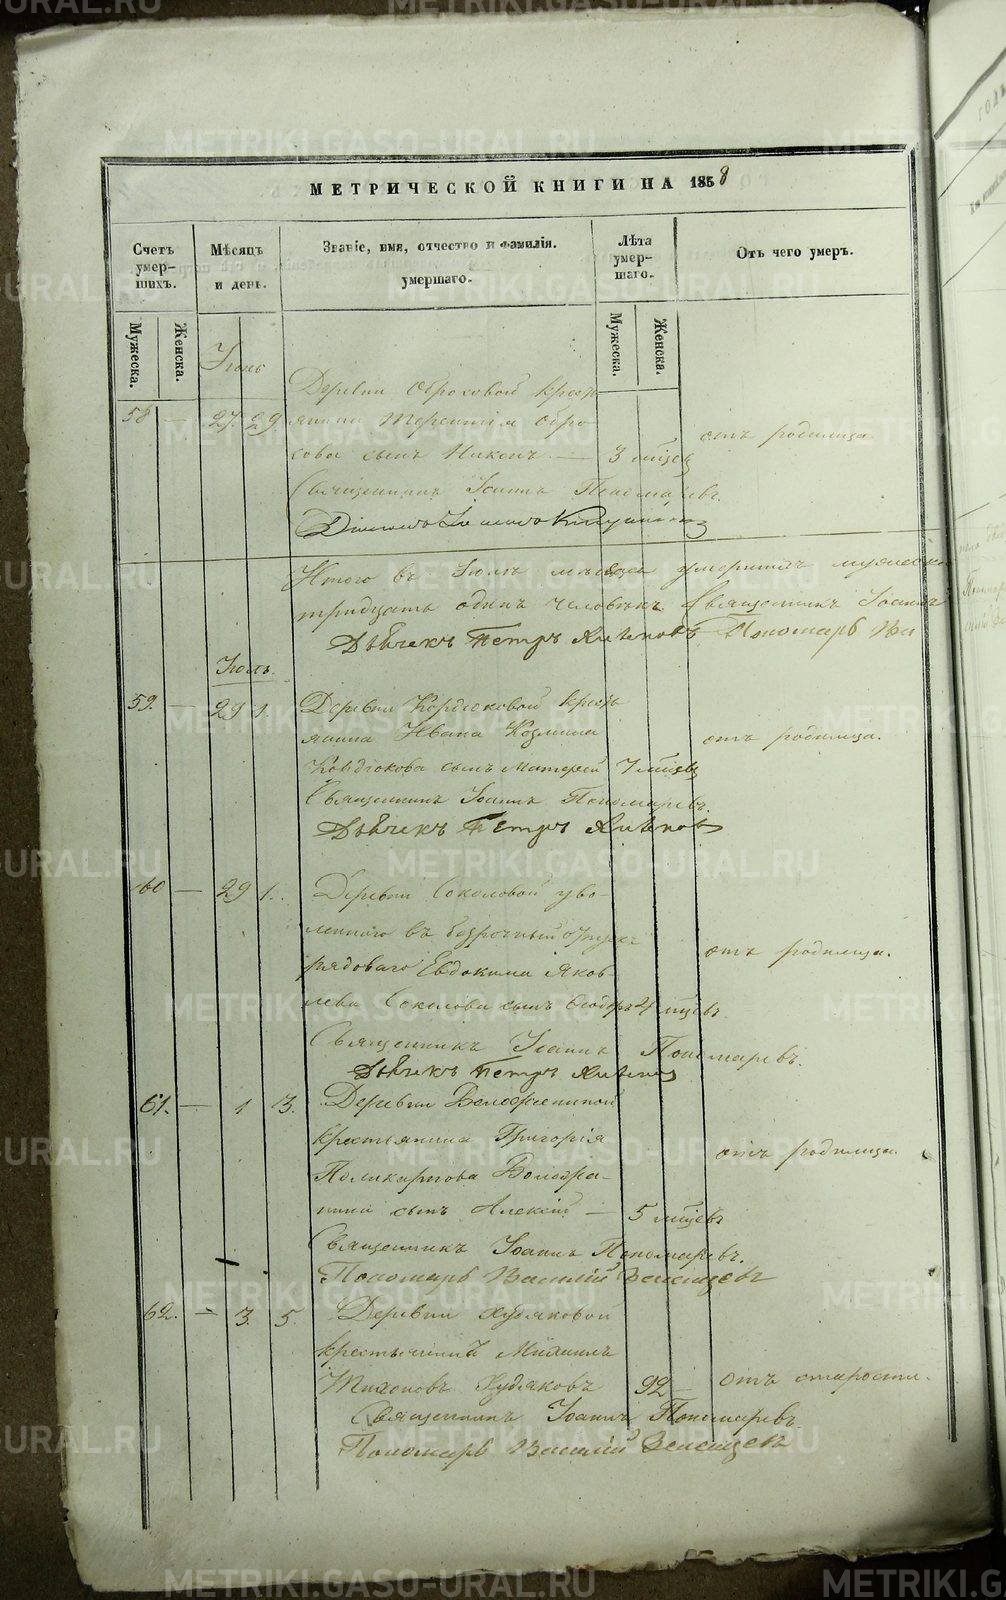 МЕТРИЧЕСКОЙ КНИГИ НА 1858
Счетъ умер-шихъ.
Мѣсяцъ и день.
Званіе, имя, отчество и фамилія умершаго.
Лѣта умер-шаго.
Отъ чего умеръ.
Мужеска. Женска. Мужеска. Женска.
Іюнь
Деревни Обросовой кресть
58 — 27. 29 янина Терентія Обро-
сова сынъ Никонъ — 3 мѣсец отъ родимца
Священникъ Іоаннъ Пономаревъ.
Итого въ Іюнѣ мѣсяцѣ умершихъ мужеска
тридцать одинъ человѣкъ. Священникъ Іоаннъ
Дьячекъ Петръ Пономарь
Іюль.
59. — 29 1. Деревни Кордюковой кресть
янина Ивана Козмина отъ родимца.
Кордюкова сынъ Матфей 7 мѣсец
Священникъ Іоаннъ Пономаревъ.
Дьячекъ Петръ
60 — 29 1. Деревни Соколовой уво-
леннаго въ безсрочный отпускъ
рядоваго Евдокима Яков отъ родимца.
лева Соколова сынъ Феодоръ 4 мѣсец
Священникъ Іоаннъ Пономаревъ.
Дьячекъ Петръ
61. — 1 3. Деревни
крестьянина Григорія
Поликарпова отъ родимца.
сынъ Алексій — 5 мѣсец
Священникъ Іоаннъ Пономаревъ.
Пономарь Василій
62. — 3. 5. Деревни Худяковой
крестьянинъ Михаилъ
Тихоновъ Худяковъ 92 — отъ старости.
Священникъ Іоаннъ Пономаревъ
Пономарь Василій
METRIKI.GASO-URAL.RU